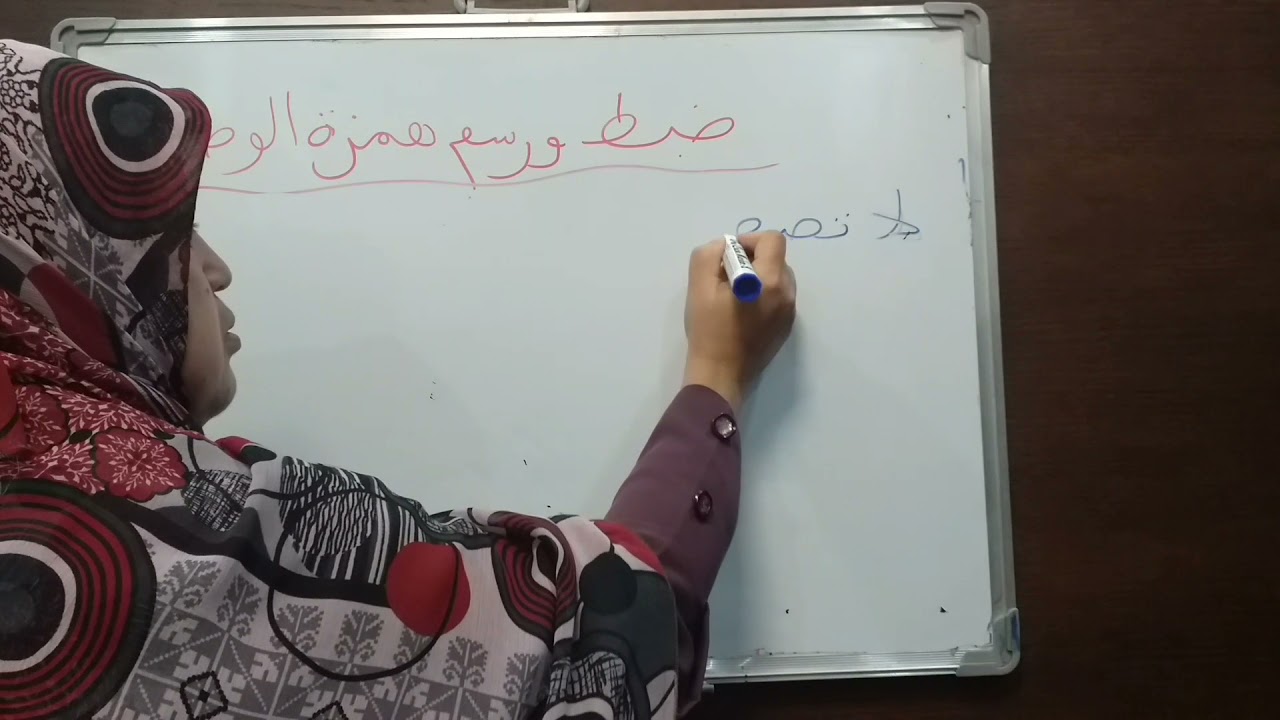 ضبط ورسم همزة الوص
لا تصع